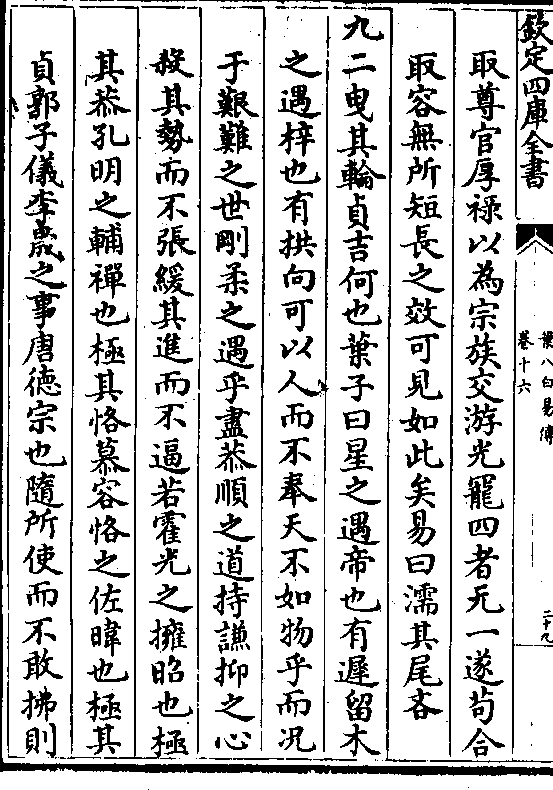 欽定四庫全書
葉八白易傳
卷十六
二十九
取尊官厚祿以為宗族交游光寵四者无一遂苟合
取容無所短長之效可見如此矣易曰濡其尾吝
九二曳其輪貞吉何也葉子曰星之遇帝也有遲留木
之遇梓也有拱向可以人而不奉天不如物乎而况
于艱難之世剛柔之遇乎盡恭順之道持謙抑之心
殺其勢而不張緩其進而不逼若霍光之擁昭也極
其恭孔明之輔禪也極其恪慕容恪之佐暐也極其
貞郭子儀李晟之事唐徳宗也隨所使而不敢拂則